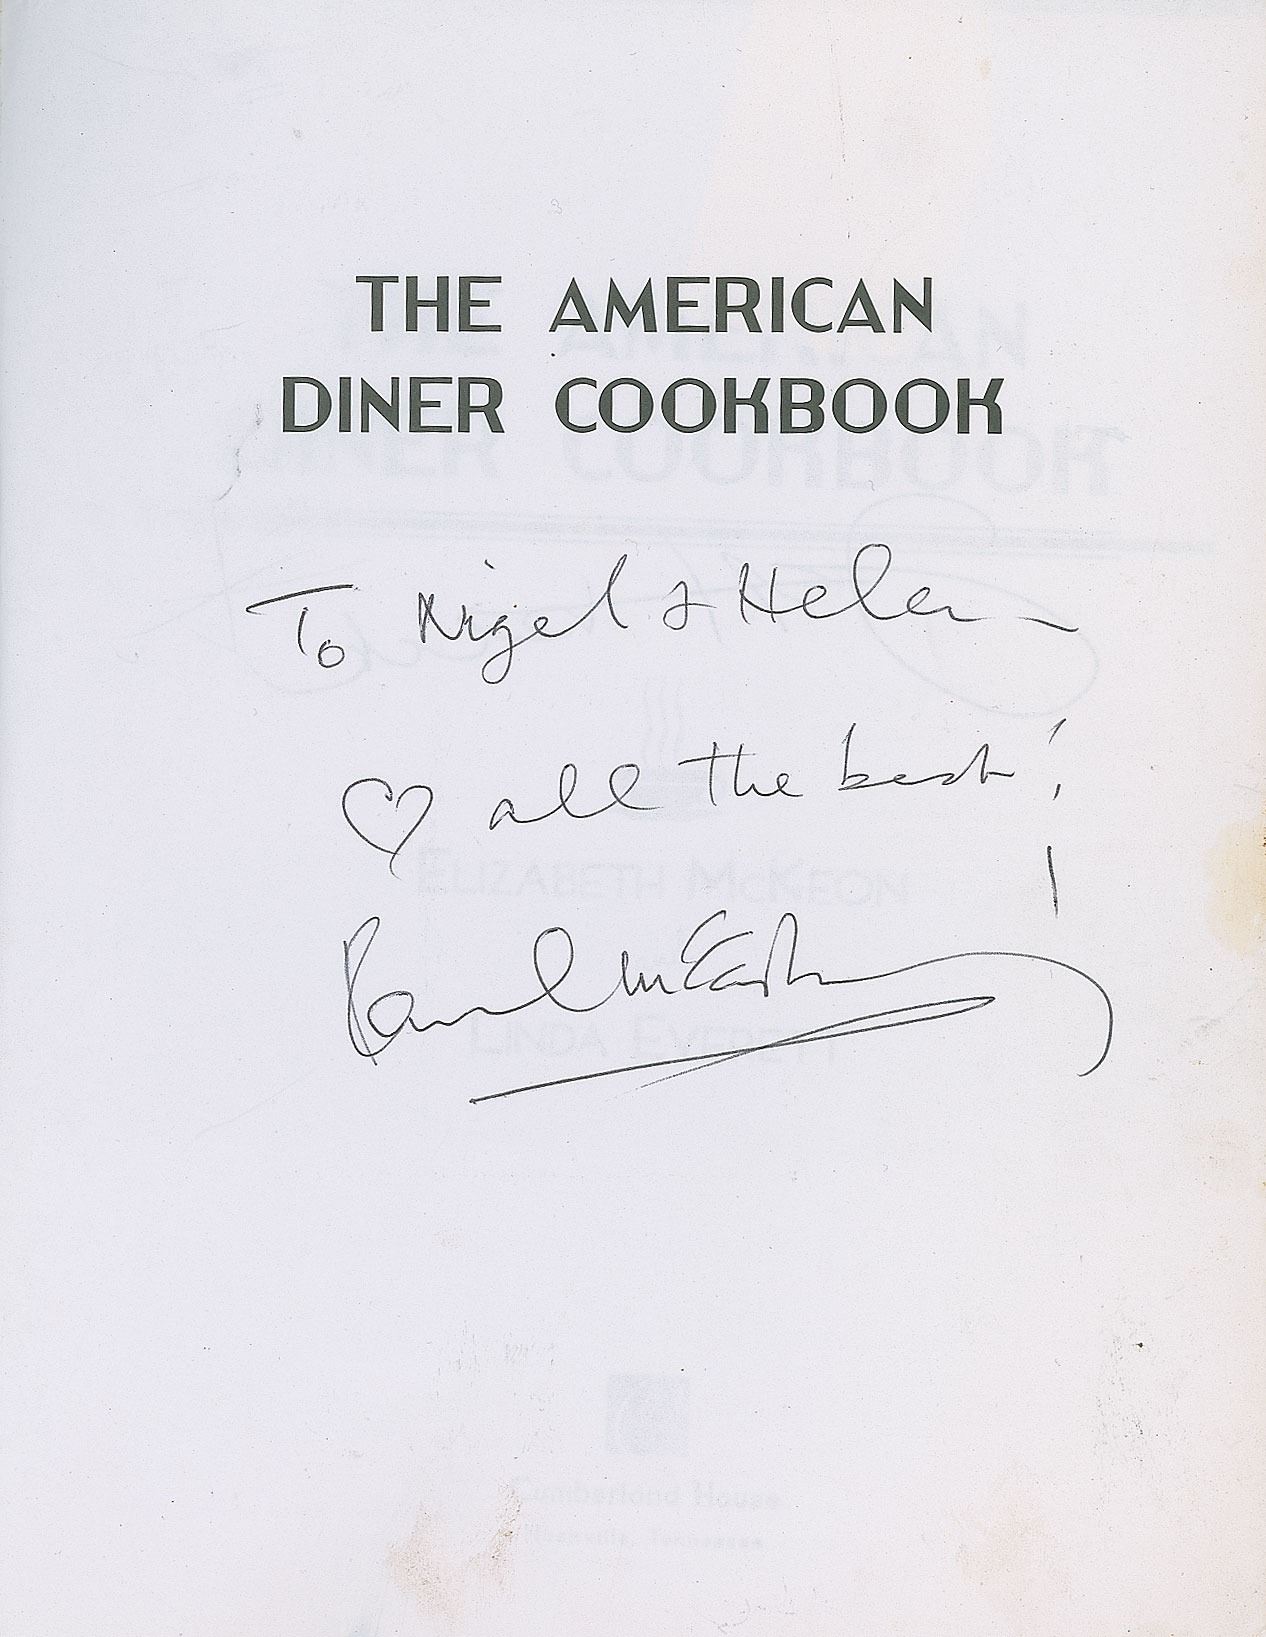 THE AMERICAN
DINER COOKBOOK
To Nigel & Helen
♡ all the best!
Paul McCartney
ELIZABETH MCKEON
LINDA EVERETT
Cumberland House
Nashville, Tennessee